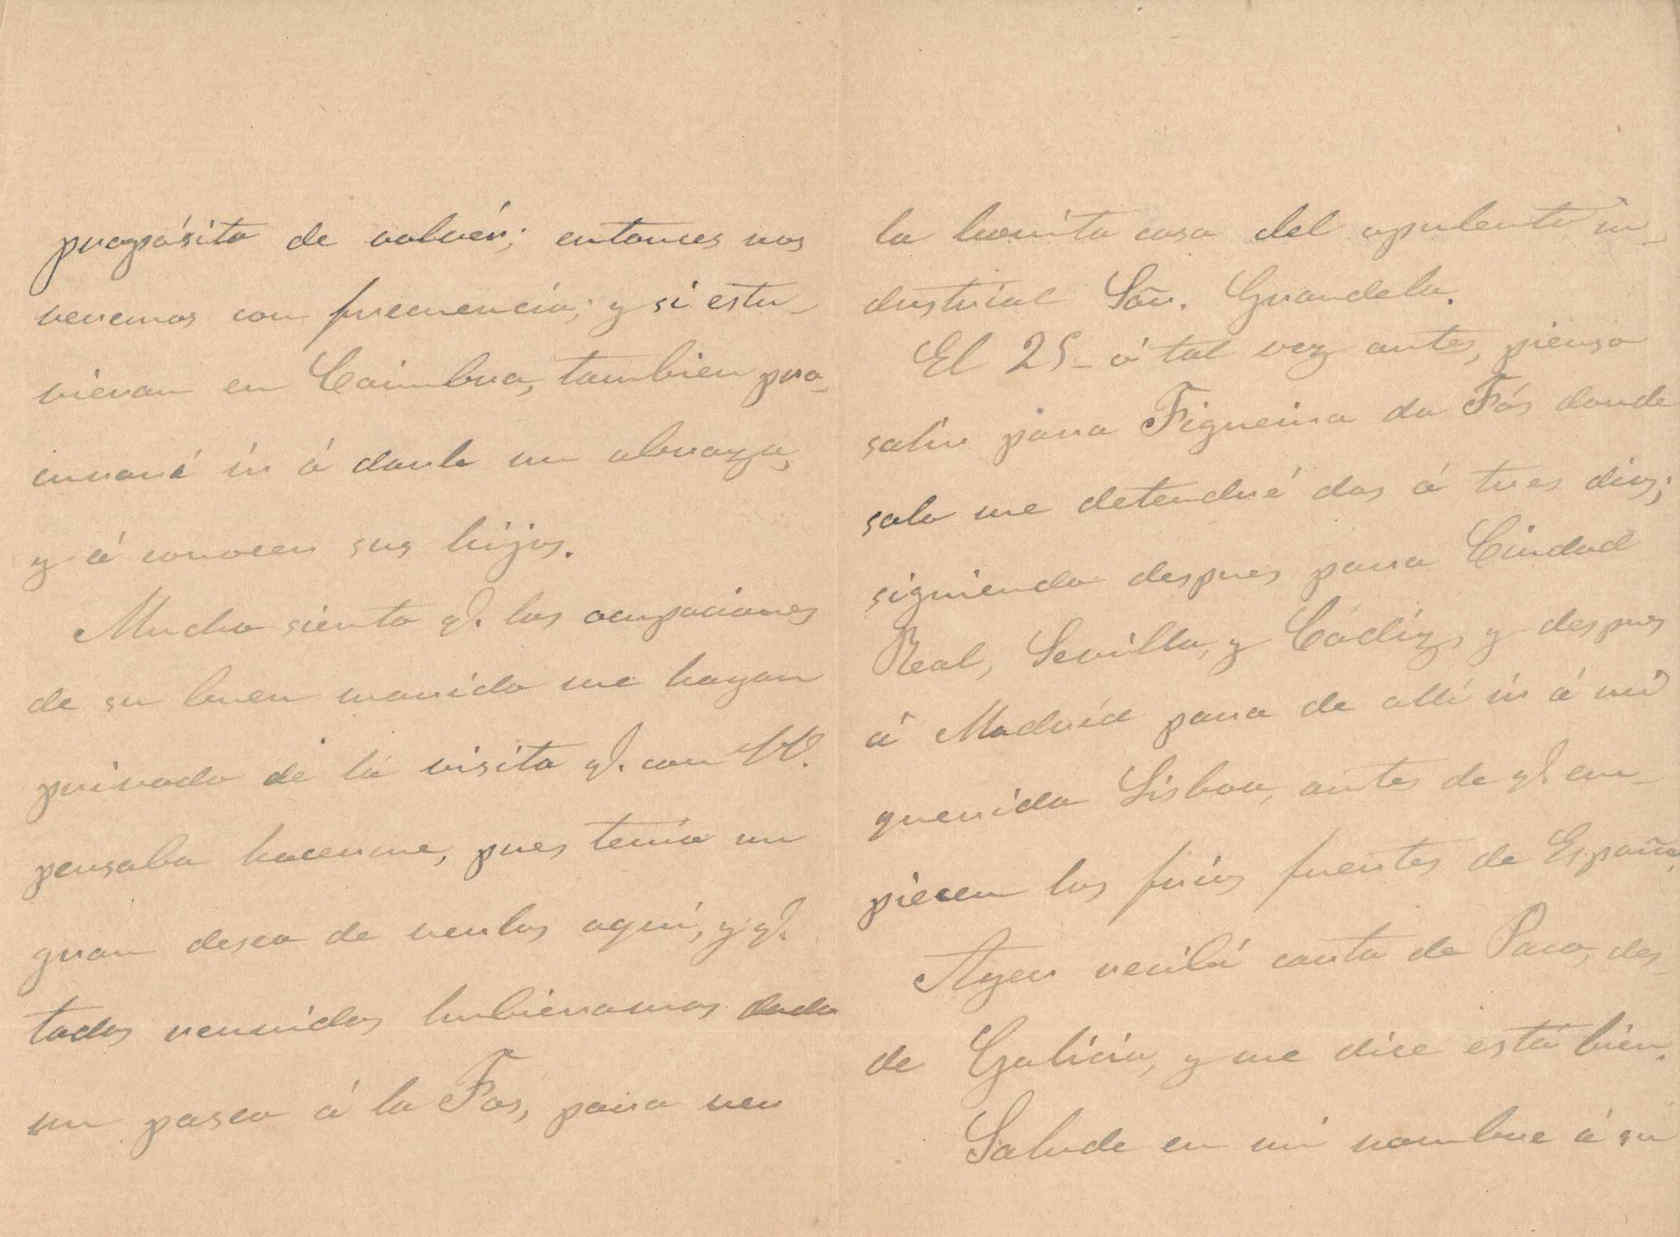 propósito de volvér; entonces nos
veremos con frecuencia; y si estu-
vieran en Coimbra, tambien pro-
curaré ir á darle un abrazo,
y á conocer sus hijos.
Mucho siento q. las ocupaciones
de su buen marido me hayan
privado de la visita q. con VV.
pensaba hacerme, pues tenía un
gran deseo de verlos aquí, y q.
todos reunidos hubieramos dado
un paseo á la Fos, para ver
la bonita casa del opulento in-
dustrial Sõr. Grandela.
El 25 - ó tal vez antes, pienso
salir para Figueira da Fós donde
solo me detendré dos ó tres dias;
siguiendo despues para Ciudad
Real, Sevilla, y Cádiz, y despues
á Madrid para de allí ir á mi
querida Lisboa, antes de q. em-
piecen los frios fuertes de España.
Ayer recibí carta de Paco, des-
de Galicia, y me dice está bien.
Salude en mi nombre á su